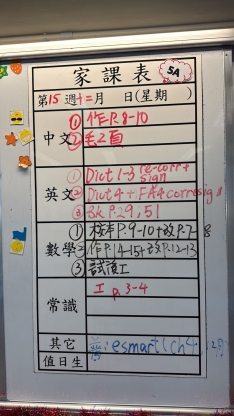 家課表
5A
第15週十二月 日(星期 )
中文
① 作P.8-10
② 毛2頁
英文
① Dict 1-3 re-corr+
sign
② Dict 4 + FA4 corr+sig
③ P.29,51
數學
① 校本P.9-10+改P.7-8
② 作P.14-15+改P.12-13
③ 試後工
常識
工 p.3-4
其它
普:esmart(ch4
值日生